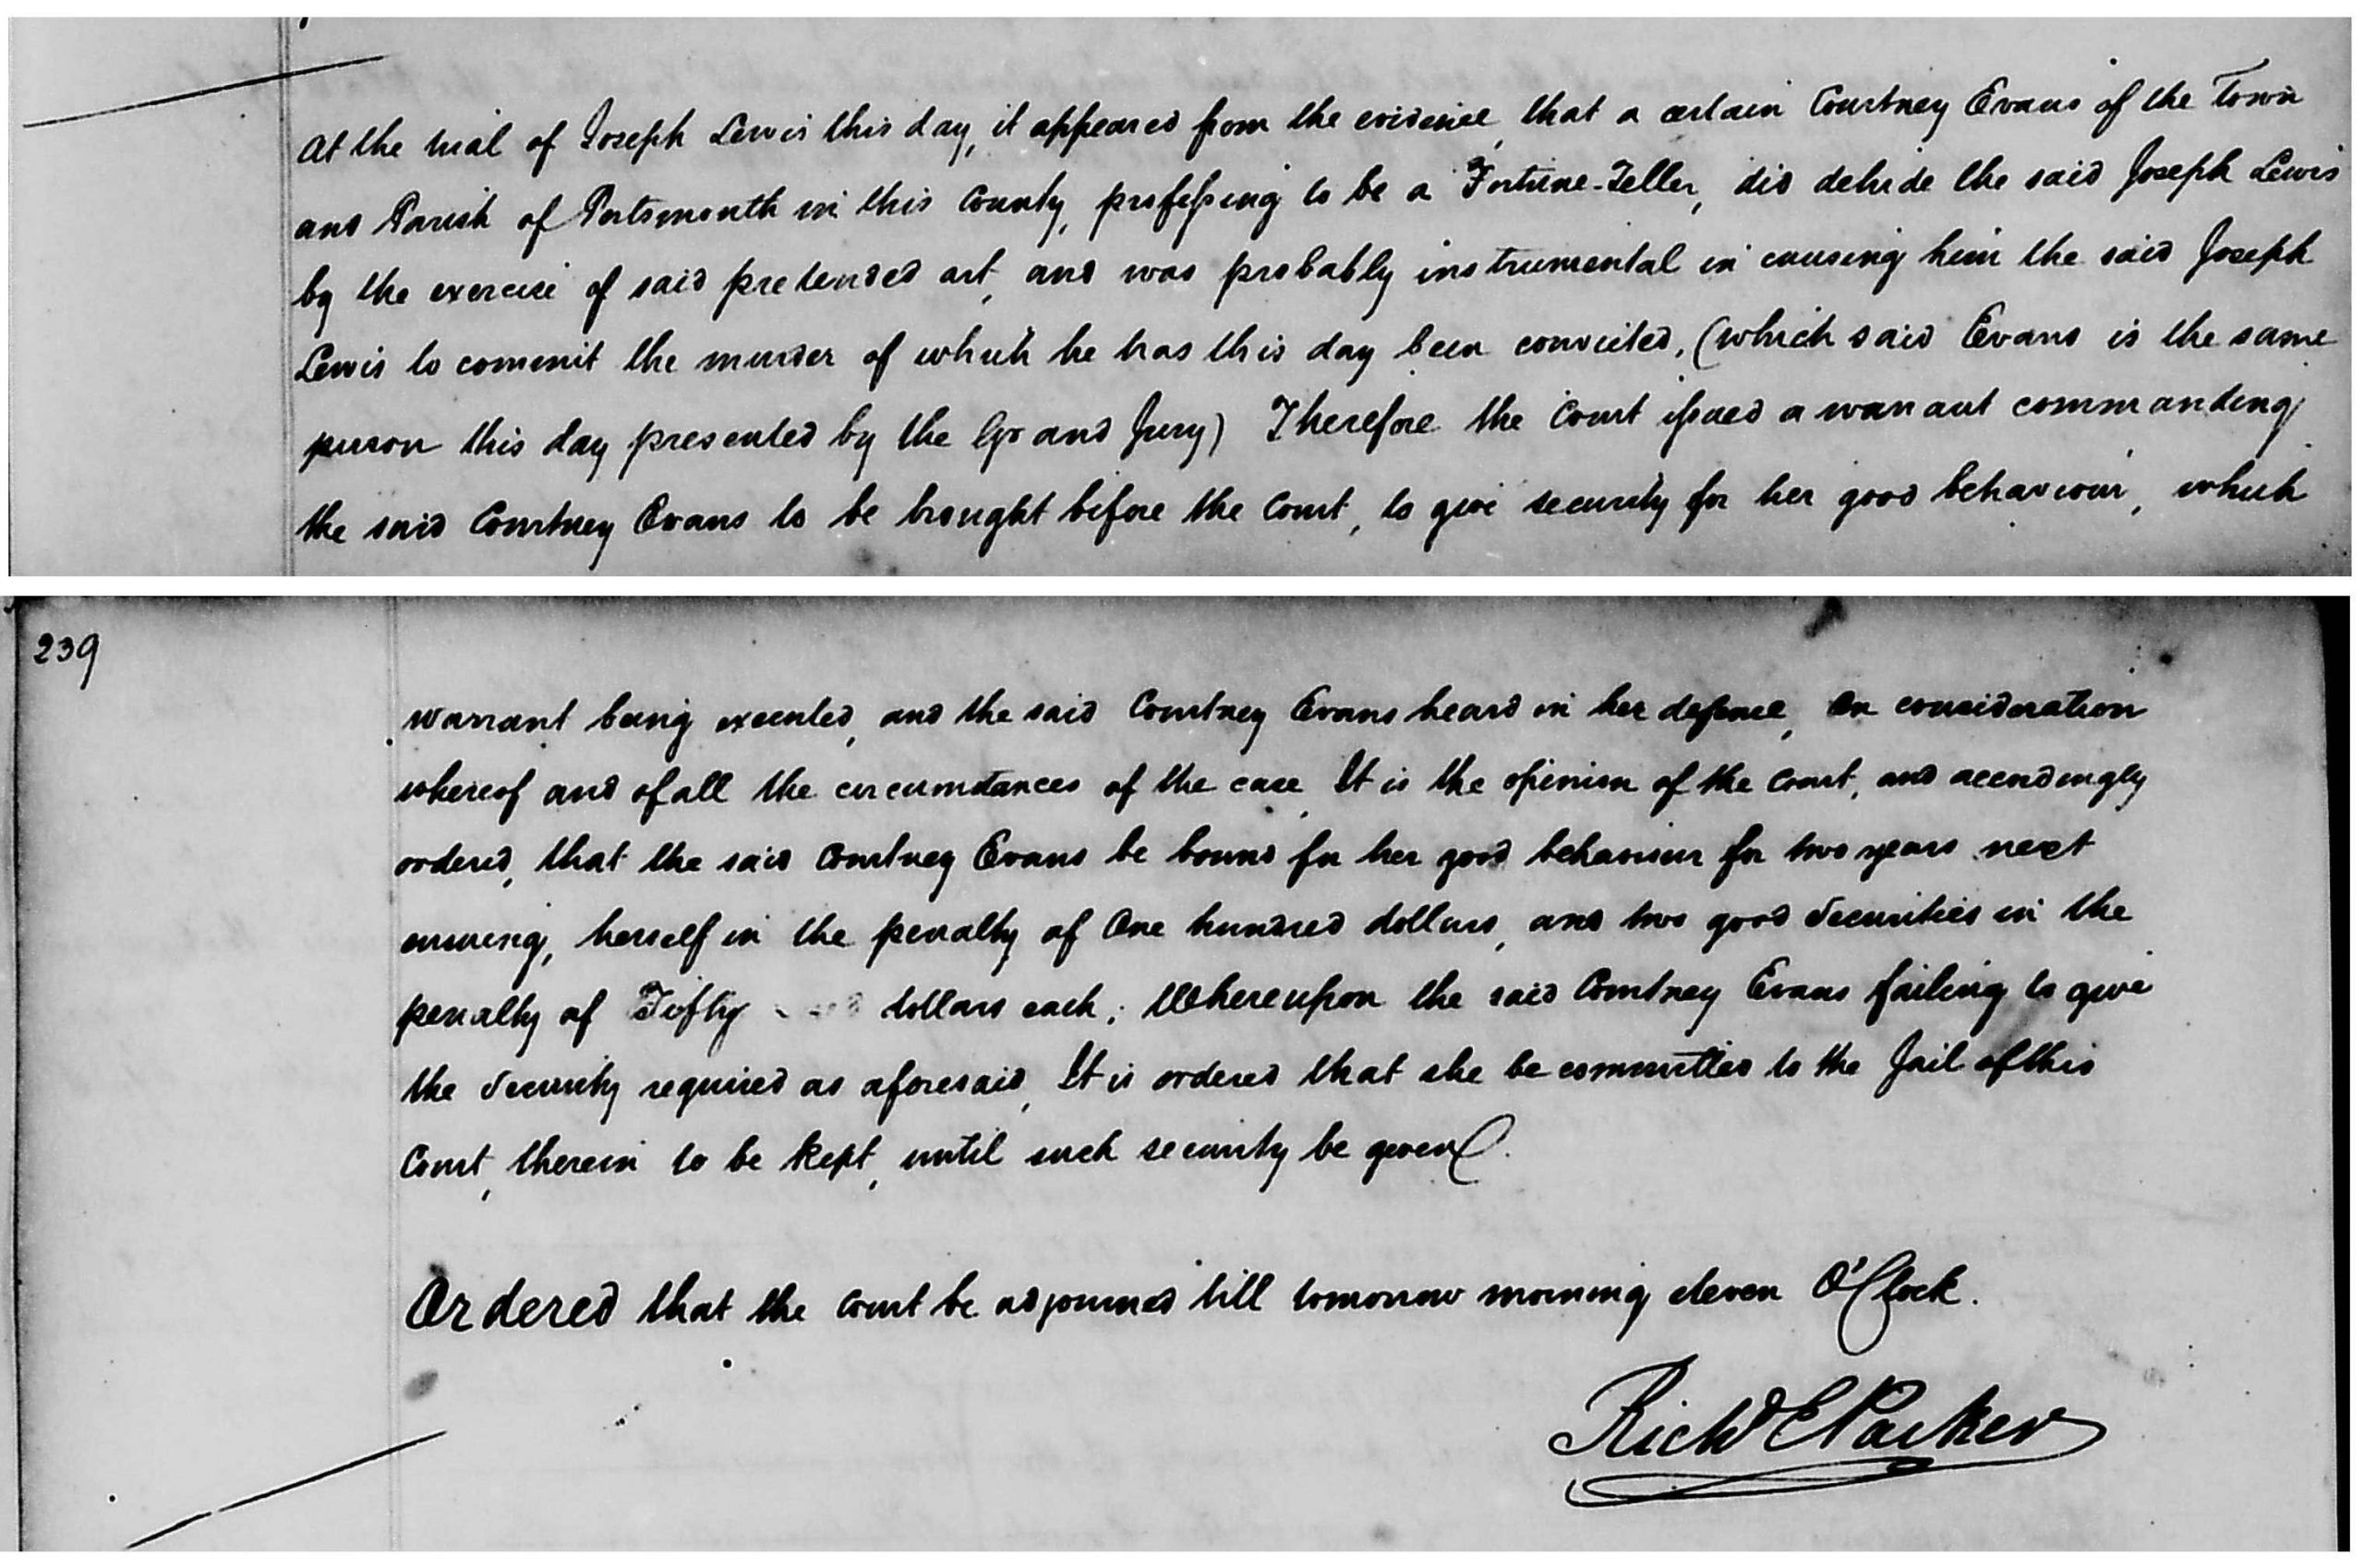 At the trial of Joseph Lewis this day, it appeared from the evidence, that a certain Courtney Evans of the Town
and Parish of Portsmouth in this County, professing to be a Fortune-Teller, did delude the said Joseph Lewis
by the exercise of said pretended art, and was probably instrumental in causing him the said Joseph
Lewis to commit the murder of which he has this day been convicted, (which said Evans is the same
person this day presented by the Grand Jury) Therefore the Court issued a warrant commanding
the said Courtney Evans to be brought before the Court, to give security for her good behaviour, which
239
warrant being executed, and the said Courtney Evans heard in her defence, On consideration
whereof and of all the circumstances of the case, It is the opinion of the Court, and accordingly
ordered, that the said Courtney Evans be bound for her good behaviour for two years next
ensuing, herself in the penalty of One hundred dollars, and two good Securities in the
penalty of Fifty dollars each; Whereupon the said Courtney Evans failing to give
the Security required as aforesaid, It is ordered that she be committed to the Jail of this
Court, therein to be kept, until such security be given.
Ordered that the Court be adjourned till tomorrow morning eleven O'Clock.
Richd E Parker